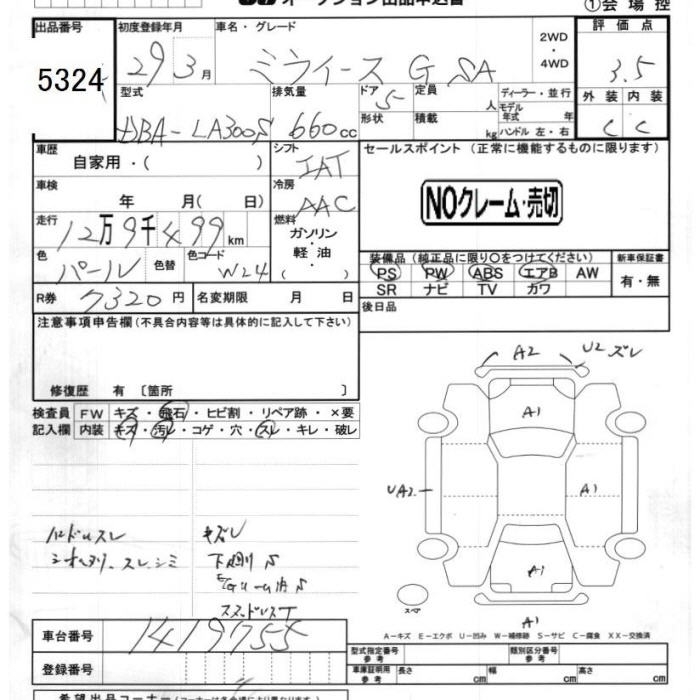 オークション出品申込書
①会場控
出品番号
5324
初度登録年月
29 3月
車名・グレード
ミライース G SA
2WD
・
4WD
評価点
3.5
型式
DBA-LA300S
排気量
660cc
ドア
5
定員
人
形状
積載
kg
ディーラー・並行
モデル年式
年
ハンドル 左・右
外装
内装
C
C
車歴
自家用・(　　　　　)
シフト
IAT
車検
年　月(　日)
冷房
AAC
走行
12万9千499km
燃料
ガソリン
・
軽油
・
(　　)
色
パール
色替
色コード
W24
R券
7320円
名変期限　月　日
セールスポイント (正常に機能するものに限ります)
NOクレーム・売切
装備品 (純正品に限り○をつけてください)
PS PW ABS エアB AW
SR ナビ TV カワ
新車保証書
有・無
後日品
注意事項申告欄(不具合内容等は具体的に記入して下さい)
修復歴　有〔箇所　　　〕
検査員
記入欄
FW
キズ・飛石・ヒビ割・リペア跡・×要
内装
キズ・汚れ・コゲ・穴・スレ・キレ・破レ
ハンドルスレ
スレ シミ
キズレ
下廻りS
A2
U2 ズレ
A1
UA2
A1
A1
A1
スペア
A－キズ　E－エクボ　U－凹み　W－補修跡　S－サビ　C－腐食　XX－交換済
車台番号
1419755
登録番号
型式指定番号
参考
類別区分番号
参考
車庫証明用
参考
長さ
cm
幅
cm
高さ
cm
希望出品コーナー